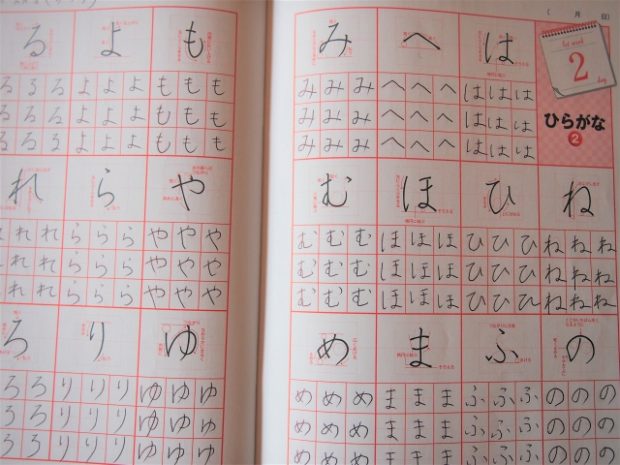 (　月　日)
1st week
2
day
ひらがな
2
ね
ねねね
ねねね
ねねね
の
ののの
ののの
ののの
は
ははは
ははは
ははは
ひ
ひひひ
ひひひ
ひひひ
ふ
ふふふ
ふふふ
ふふふ
へ
へへへ
へへへ
へへへ
ほ
ほほほ
ほほほ
ほほほ
ま
ままま
ままま
ままま
み
みみみ
みみみ
みみみ
む
むむむ
むむむ
むむむ
め
めめめ
めめめ
めめめ
も
ももも
ももも
ももも
や
ややや
ややや
ややや
ゆ
ゆゆゆ
ゆゆゆ
ゆゆゆ
よ
よよよ
よよよ
よよよ
ら
ららら
ららら
ららら
り
りりり
りりり
りりり
る
るるる
るるる
るるる
れ
れれ
れれ
れれ
ろ
ろろ
ろろ
ろろ